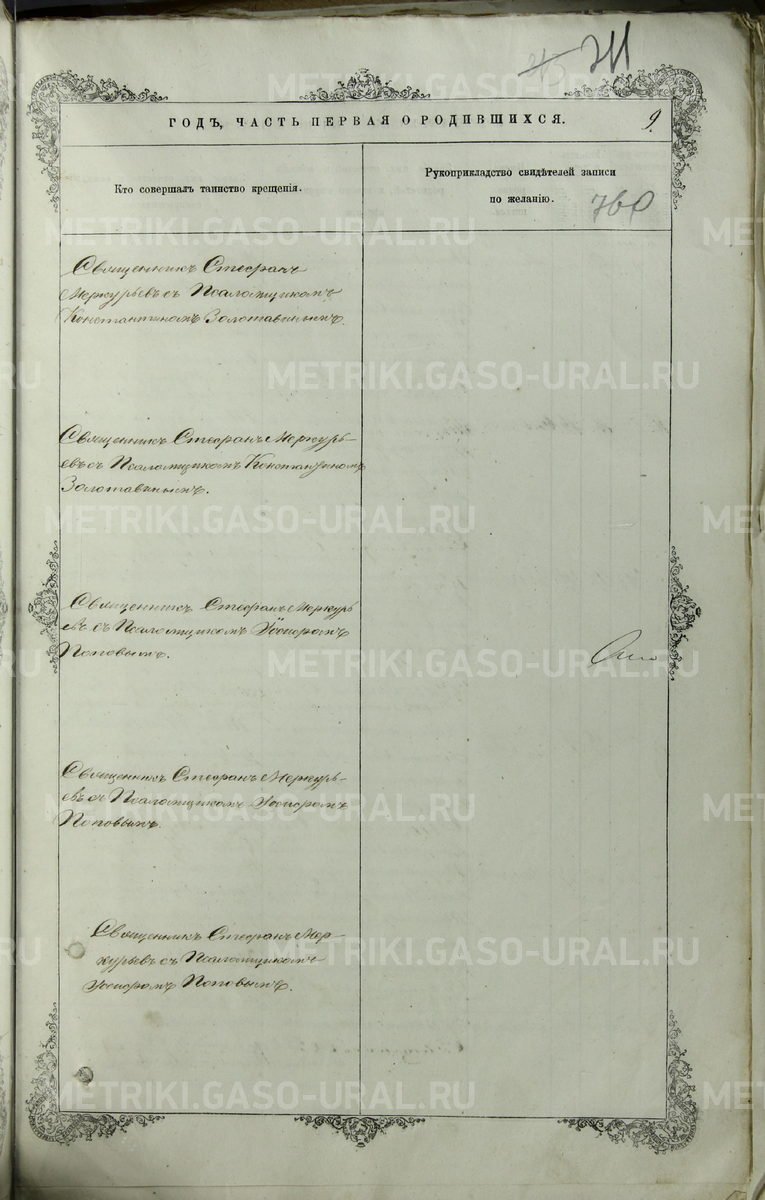 711
ГОДЪ, ЧАСТЬ ПЕРВАЯ О РОДИВШИХСЯ.
9.
Кто совершалъ таинство крещенія.
Рукоприкладство свидѣтелей записи
по желанію.
760
Священникъ Стефанъ
Меркурьевъ съ Псаломщикомъ
Константиномъ Золотавинымъ.
Священникъ Стефанъ Меркурь-
евъ съ Псаломщикомъ Константиномъ
Золотавинымъ.
Священникъ Стефанъ Меркурь
евъ съ Псаломщикомъ
Поповымъ.
Священникъ Стефанъ Меркурь-
евъ съ Псаломщикомъ
Поповымъ.
Священникъ Стефанъ Мер-
курьевъ съ Псаломщикомъ
Поповымъ.
METRIKI.GASO-URAL.RU